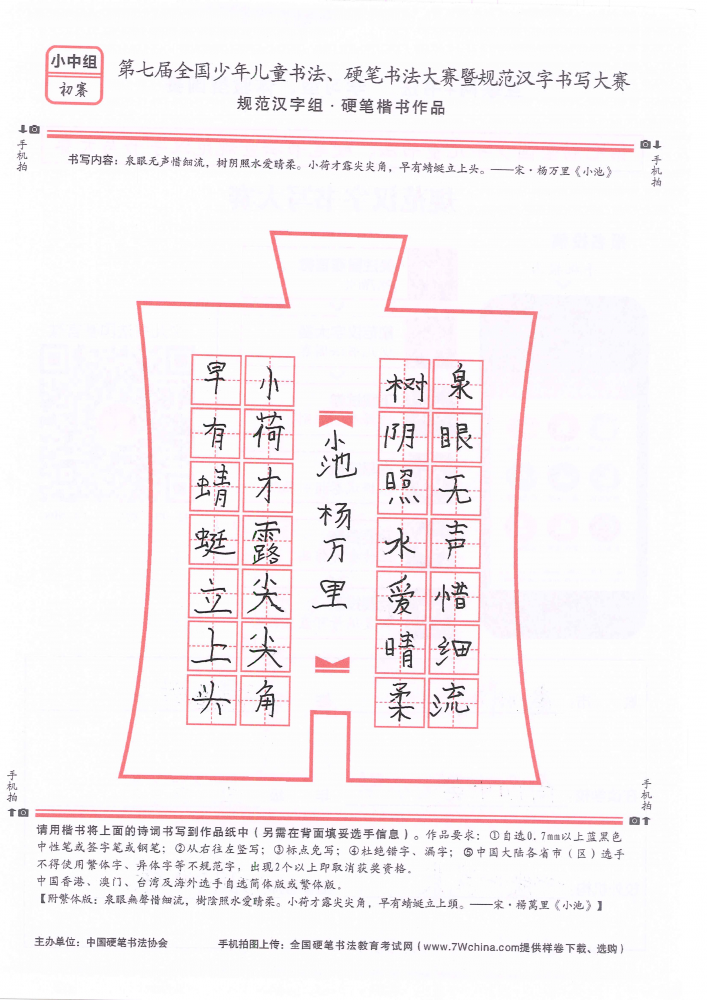 小中组
初赛
第七届全国少年儿童书法、硬笔书法大赛暨规范汉字书写大赛
规范汉字组·硬笔楷书作品
手机拍
手机拍
书写内容：泉眼无声惜细流，树阴照水爱晴柔。小荷才露尖尖角，早有蜻蜓立上头。——宋·杨万里《小池》
泉眼无声惜细流
树阴照水爱晴柔
小池 杨万里
小荷才露尖尖角
早有蜻蜓立上头
手机拍
手机拍
请用楷书将上面的诗词书写到作品纸中（另需在背面填妥选手信息）。作品要求：①自选0.7mm以上蓝黑色
中性笔或签字笔或钢笔；②从右往左竖写；③标点免写；④杜绝错字、漏字；⑤中国大陆各省市（区）选手
不得使用繁体字、异体字等不规范字，出现2个以上即取消获奖资格。
中国香港、澳门、台湾及海外选手自选简体版或繁体版。
【附繁体版：泉眼無聲惜细流，樹陰照水爱晴柔。小荷才露尖尖角，早有蜻蜓立上頭。——宋·楊萬里《小池》】
主办单位：中国硬笔书法协会
手机拍图上传：全国硬笔书法教育考试网（www.7Wchina.com提供样卷下载、选购）